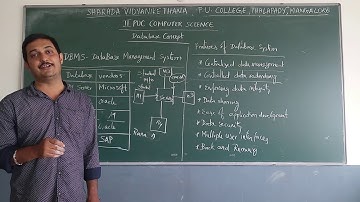 SHARADA VIDYANIKETHANA P.U. COLLEGE, THALAPADY, MANGALORE
II PUC COMPUTER SCIENCE
Database Concept
DBMS- DataBase Management System
Database vendors
Server Microsoft
oracle
oracle
SAP
Features of Database System
- Centralized data management
- Controlled data redundancy
- Enforcing data integrity
- Data sharing
- Ease of application development
- Data security
- Multiple user interfaces
- Back and Recovery